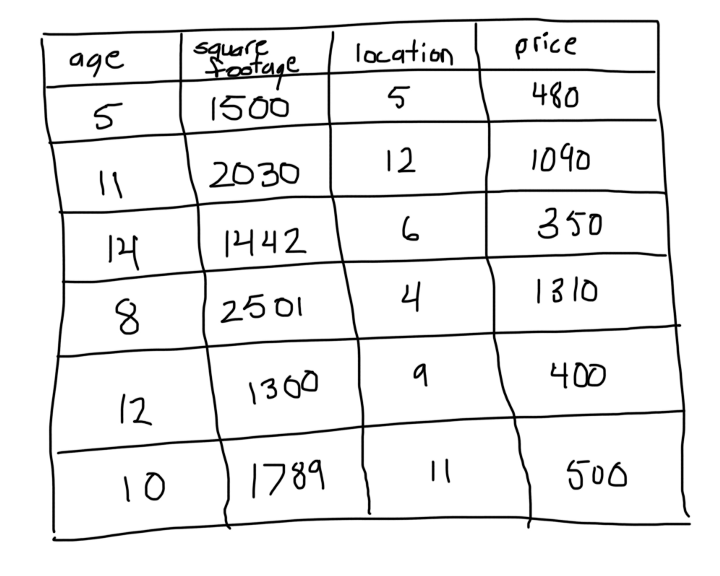 age square footage location price
5 1500 5 480
11 2030 12 1090
14 1442 6 350
8 2501 4 1310
12 1300 9 400
10 1789 11 500